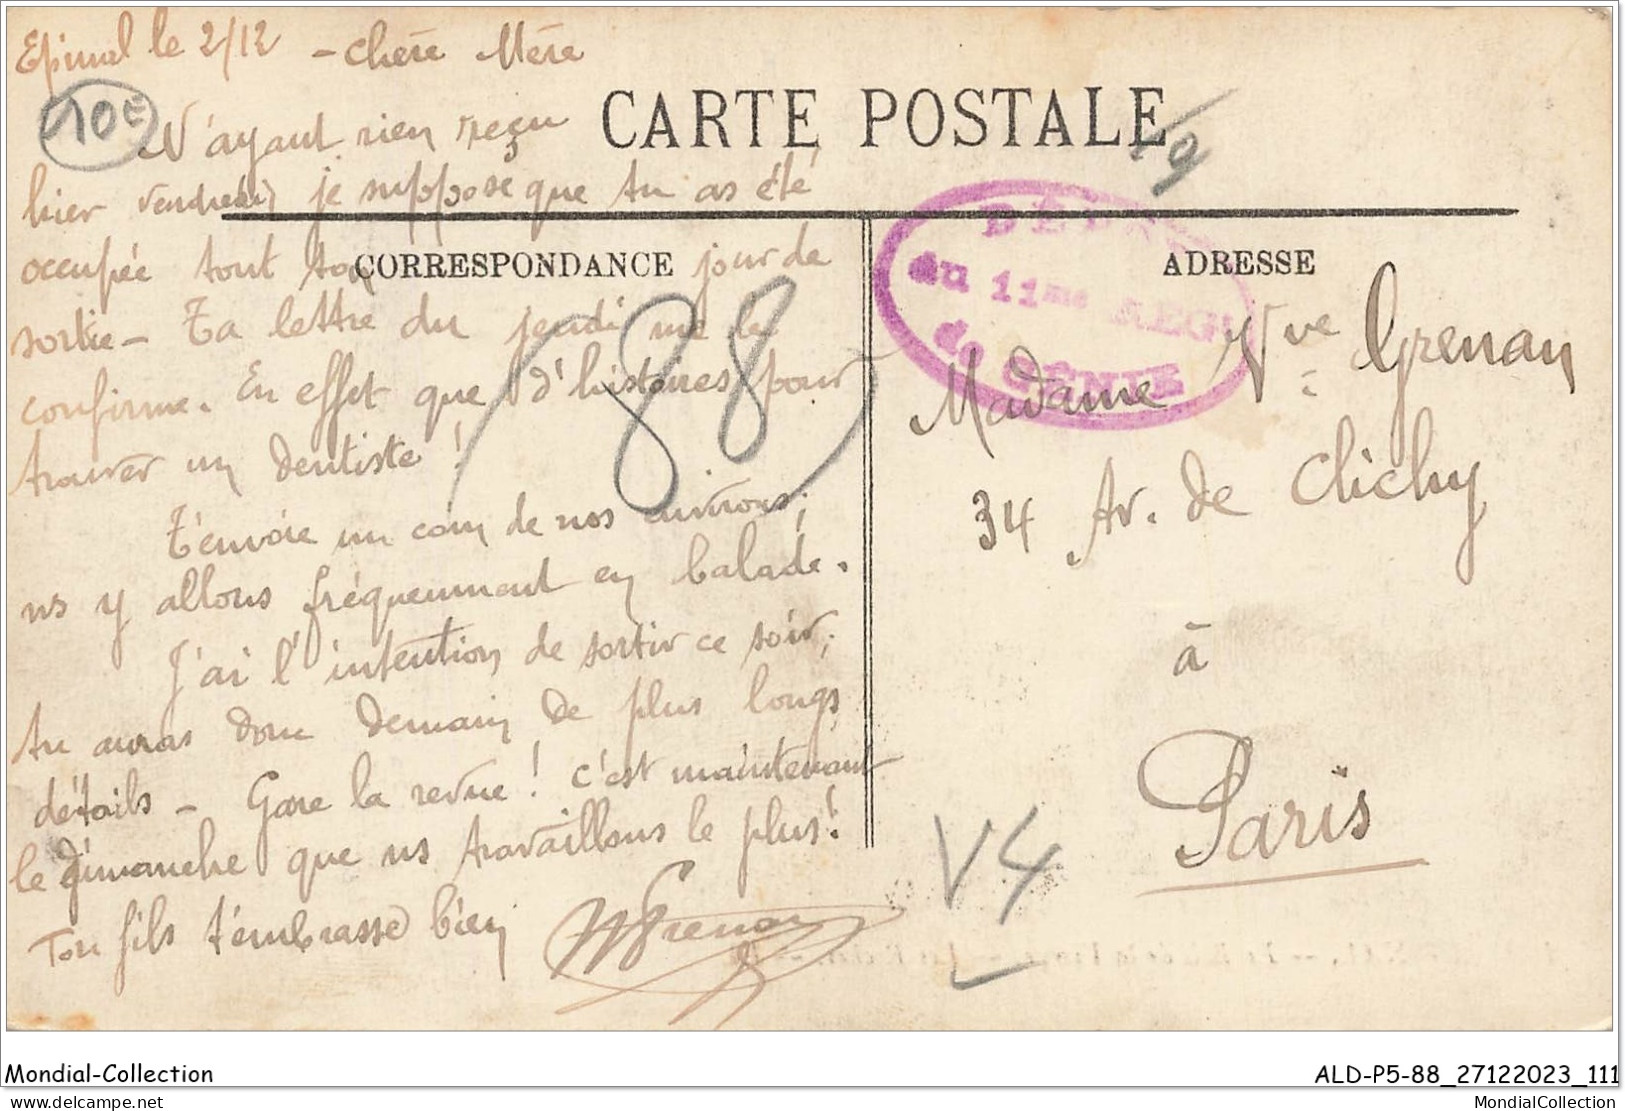 Epinal le 2/12 - Chère Mère
10€
N'ayant rien reçu
CARTE POSTALE
hier vendredi je suppose que tu as été
occupée tout ton jour de
CORRESPONDANCE
sortie - Ta lettre du jeudi me le
confirme. En effet que d'histoires pour
trouver un dentiste !
88
T'envoie un coin de nos environs;
ns y allons fréquemment en balade.
J'ai l'intention de sortir ce soir;
tu auras donc demain de plus longs
détails - Gare la revue ! c'est maintenant
le dimanche que ns travaillons le plus !
Ton fils t'embrasse bien
Grenan
DÉPÔT
du 11me REGt
de GÉNIE
ADRESSE
Madame Vve Grenan
34 Av. de Clichy
à
Paris
V4
Mondial-Collection
ALD-P5-88_27122023_111
delcampe.net
MondialCollection